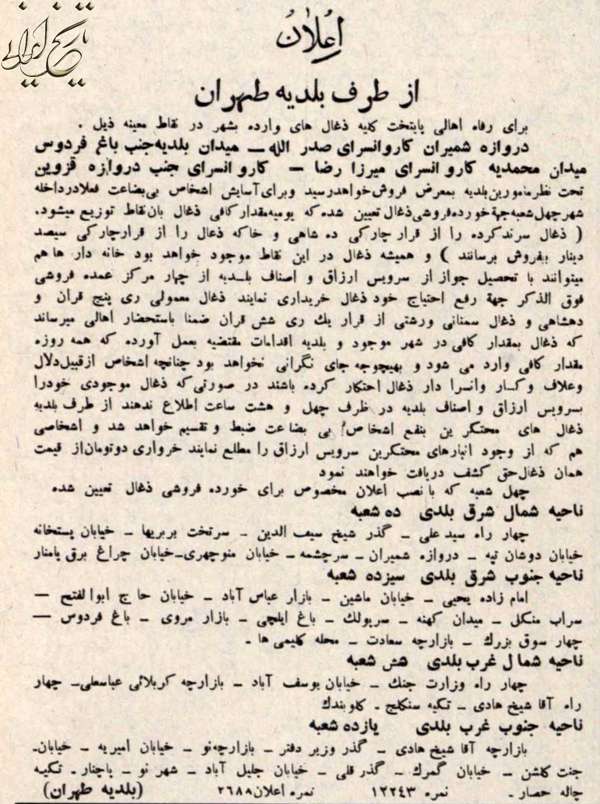 تاریخ ایرانی
اعلان
از طرف بلدیه طهران
برای رفاه اهالی پایتخت کلیه ذغال های وارده بشهر در نقاط معینه ذیل .
دروازه شمیران کاروانسرای صدر الله ــ میدان بلدیه‌جنب باغ فردوس
میدان محمدیه کاروانسرای میرزا رضا – کاروانسرای جنب دروازه قزوین
تحت نظرمامورین‌بلدیه بمعرض فروش‌خواهدرسید وبرای‌آسایش اشخاص بی‌بضاعت فعلادرداخله
شهرچهل‌شعبه‌جهة‌خورده‌فروشی‌ذغال تعیین شده‌که یومیه‌مقدارکافی ذغال بان‌نقاط توزیع میشود.
( ذغال سرندکرده را از قرار چارکی ده شاهی و خاکه ذعال را از قرارچارکی سیصد
دینار بفروش برسانند ) و همیشه ذغال در این نقاط موجود خواهد بود خانه دار هاهم
میتوانند با تحصیل جواز از سرویس ارزاق و اصناف بلدیه از چهار مرکز عمده فروشی
فوق الذکر جهة رفع احتیاج خود ذغال خریداری نمایند ذغال معمولی ری پنج قران و
دهشاهی و ذغال سمنانی ورشتی از قرار یك ری شش قران ضمنا باستحضار اهالی میرساند
که ذغال بمقدار کافی در شهر موجود و بلدیه اقدامات مقتضیه بعمل آورده که همه روزه
مقدار کافی وارد می شود و بهیچوجه جای نگرانی نخواهد بود چنانچه اشخاص ازقبیل‌دلال
وعلاف وکسار وانسرا دار ذغال احتکار کرده باشند در صورتی‌که ذغال موجودی خودرا
بسرویس ارزاق و اصناف بلدیه در ظرف چهل و هشت ساعت اطلاع ندهند از طرف بلدیه
ذغال های محتکر ین بنفع اشخاص بی بضاعت ضبط و تقسیم خواهد شد و اشخاصی
هم که از وجود انبارهای محتکرین سرویس ارزاق را مطلع نمایند خرواری دوتومان‌از قیمت
همان ذغال‌حق کشف دریافت خواهند نمود
چهل شعبه که با نصب اعلان مخصوص برای خورده فروشی ذغال تعیین شده
ناحیه شمال شرق بلدی ده شعبه
چهار راه سید علی ـ گذر شیخ سیف الدین ـ سرتخت بربریها ـ خیابان پستخانه
خیابان دوشان تپه ـ دروازه شمیران ـ سرچشمه ـ خیابان منوچهری‌ـ‌خیابان چراغ برق پامنار
ناحیه جنوب شرق بلدی سیزده شعبه
امام زاده یحیی ـ خیابان ماشین ـ بازار عباس آباد ـ خیابان حاج ابوالفتح ـ
سراب منگلی ـ میدان کهنه ـ سرپولك ـ باغ ایلچی ـ بازار مروی ـ باغ فردوس ـ
چهار سوق بزرك ـ بازارچه سعادت ـ محله کلیمی ها .
ناحیه شمال غرب بلدی شش شعبه
چهار راه وزارت جنك ـ خیابان یوسف آباد ـ بازارچه کربلائی عباسعلی‌ـ چهار
راه آقا شیخ هادی ـ تکیه سنگلج . گلوبندك
ناحیه جنوب غرب بلدی یازده شعبه
بازارچه آقا شیخ هادی ـ گذر وزیر دفتر ـ بازارچه‌نو ـ خیابان امیریه ـ خیابان‌ـ
جنت گلشن ـ خیابان گمرك ـ گذر قلی ـ خیابان جلیل آباد ـ شهر نو ـ پاچنار . تکیه
چاله حصار . نمره ۱۲۲۴۳ نمره اعلان ۲۶۸۸ (بلدیه طهران)